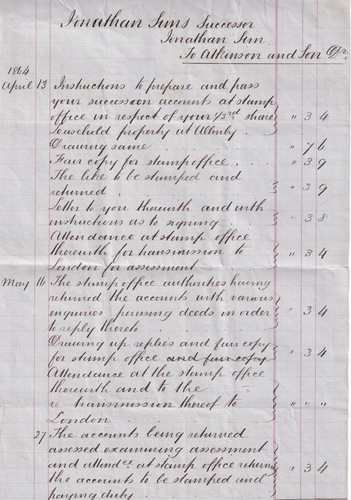 Jonathan Sims Successor
Jonathan Sim
To Atkinson and Son Dr.
1864
April 13 Instructions to prepare and pass
your succession accounts at stamp
office in respect of your 1/3rd share
Leasehold property at Allonby . " 3 4
Drawing same . . " 7 6
Fair copy for stamp office . . . " 3 9
The like to be stamped and
returned . . . " 3 9
Letter to you therewith and with
instructions as to signing " 3 8
Attendance at stamp office
therewith for transmission to
London for assessment " 3 4
May 16 The stamp office authorities having
returned the accounts with various
enquiries perusing deeds in order
to reply thereto . . " 3 4
Drawing up replies and fair copy
for stamp office and fair copy " 3 4
Attendance at the stamp office
therewith and to the
re transmission thereof to
London . . . " " "
27 The accounts being returned
assessed examining assessment
and attendce at stamp office returng
the accounts to be stamped and
paying duty " 3 4